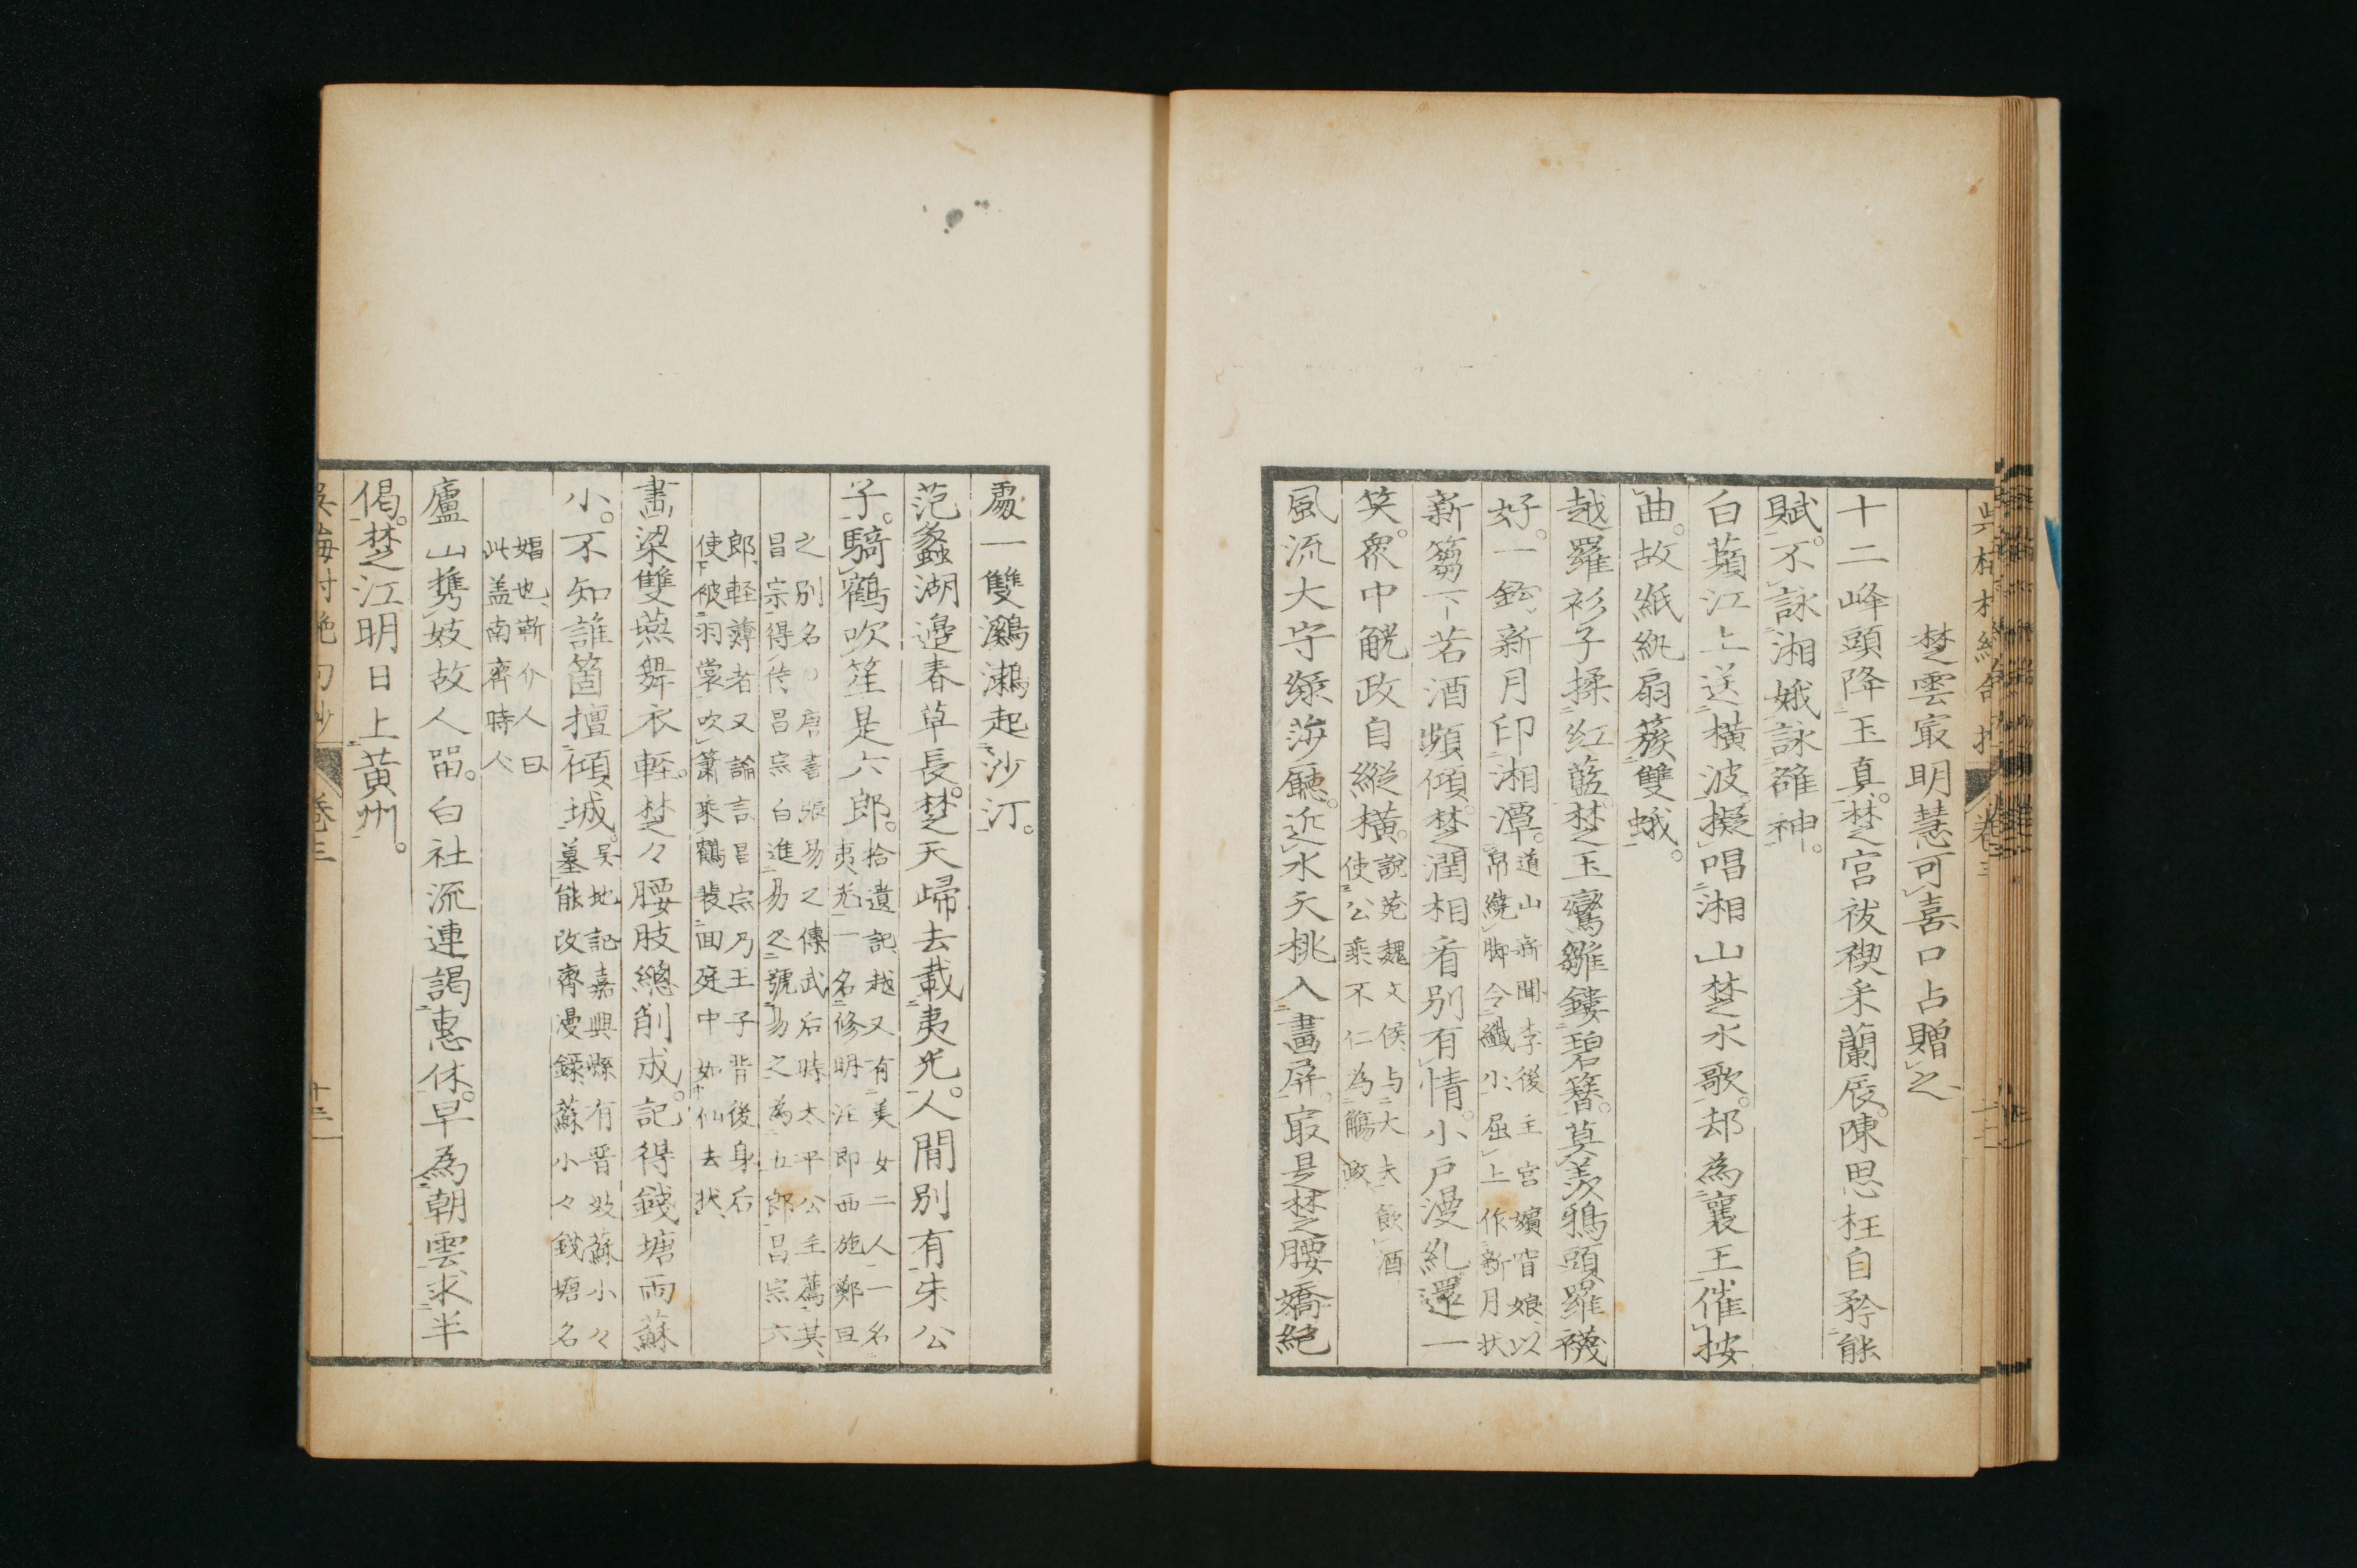 楚雲㝡明慧可喜口占贈之
十二峰頭降玉真楚宮祓禊采蘭辰陳思枉自矜能
賦不詠湘娥詠雒神
白蘋江上送橫波擬唱湘山楚水歌却為襄王催按
曲故紙紈扇簇雙蛾
越羅衫子揉紅藍楚玉鸞雛鏤碧簪莫羨鴉頭羅襪
好一鉤新月印湘潭道山新聞李後主宮嬪窅娘以
帛繞脚令纖小屈上作新月狀
新篘下若酒頻傾楚潤相看別有情小戶漫糺還一
笑衆中觥政自縱橫說苑魏文侯与大夫飲酒
使公乘不仁為觴政
風流大守綠莎廳近水夭桃入畫屏㝡是楚腰嬌絕
處一雙鸂鶒起沙汀
范蠡湖邊春草長楚天歸去載夷光人間別有朱公
子騎鶴吹笙是六郎拾遺記越又有美女二人一名
夷光一名修明注即西施鄭旦
之別名○唐書張易之傳武后時太平公主薦其
昌宗得侍昌宗白進易之號易之為五郎昌宗六
郎輕薄者又諭言昌宗乃王子晉後身后
使被羽裳吹簫乘鶴裴回庭中如仙去狀
畵梁雙燕舞衣輕楚々腰肢總削成記得錢塘雨蘇
小不知誰箇擅傾城吳地記嘉興縣有晉妓蘇小々
墓能改齊漫錄蘇小々錢塘名
娼也斬介人曰
此盖南齊時人
廬山携妓故人㽞白社流連謁惠休早為朝雲求半
偈楚江明日上黃州
卷三
十三